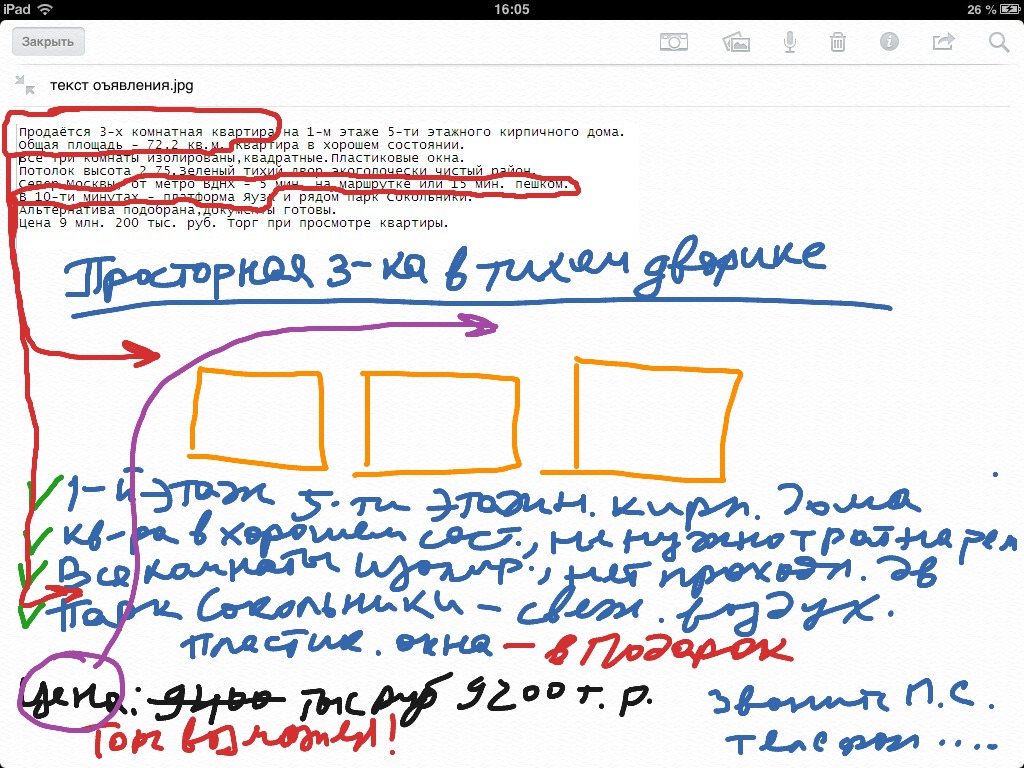 iPad 16:05 26 %
Закрыть
текст оъявления.jpg
Продаётся 3-х комнатная квартира на 1-м этаже 5-ти этажного кирпичного дома.
Общая площадь - 72,2 кв.м. Квартира в хорошем состоянии.
Все три комнаты изолированы,квадратные.Пластиковые окна.
Потолок высота 2,75.Зеленый тихий двор,экологочески чистый район.
Север Москвы, от метро ВДНХ - 5 мин. на маршрутке или 15 мин. пешком.
В 10-ти минутах - платформа Яуза и рядом парк Сокольники.
Альтернатива подобрана,документы готовы.
Цена 9 млн. 200 тыс. руб. Торг при просмотре квартиры.
Просторная 3-ка в тихом дворике
1-й этаж 5-ти этажн. кирп. дома
кв-ра в хорошем сост., не нужно трат на рем
Все комнаты изолир., нет проходн.
Парк Сокольники - свеж. воздух.
пластик. окна - в Подарок
Цена: 9400 тыс руб 9200 т. р.
Торг возможен!
Звоните П.С.
телефон ....